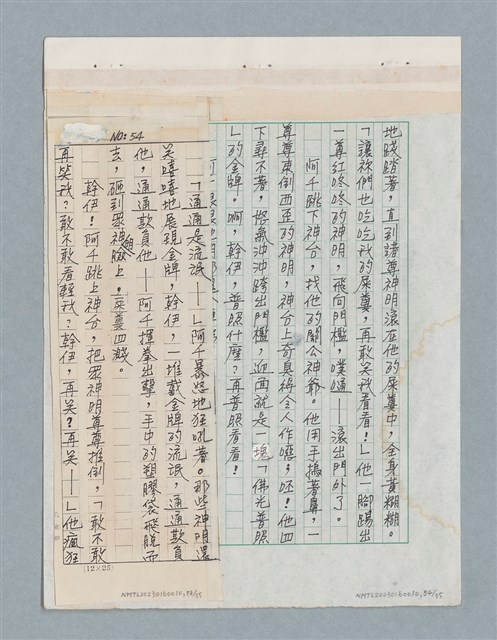 NO: 54
「通通是流氓——」阿千暴怒地狂吼著。那些神明還
笑嘻嘻地展現金牌，幹伊，一堆戴金牌的流氓，通通欺負
他，通通欺負他——阿千揮拳出擊，手中的塑膠袋飛脫而
去，砸到眾神的臉上。屎糞四濺。
幹伊！阿千跳上神台，把眾神明尊尊推倒，「敢不敢
再笑我？敢不敢看輕我？幹伊，再笑？再笑——」他瘋狂
(12×25)
NMTL20230160010,54/95
地踐踏著，直到諸尊神明滾在他的屎糞中，全身黃糊糊。
「讓祢們也吃吃我的屎糞，再敢笑我看看！」他一腳踢出
一尊紅咚咚的神明，飛向門檻，噗通——滾出門外了。
阿千跳下神台，找他的關公神爺。他用手摀著鼻，一
尊尊東倒西歪的神明，神台上奇臭得令人作嘔，呸！他四
下尋不著，怒氣沖沖跨出門檻，迎面就是一塊「佛光普照
」的金牌。啊，幹伊，普照什麼？再普照看看！
NMTL20230160010,54/95